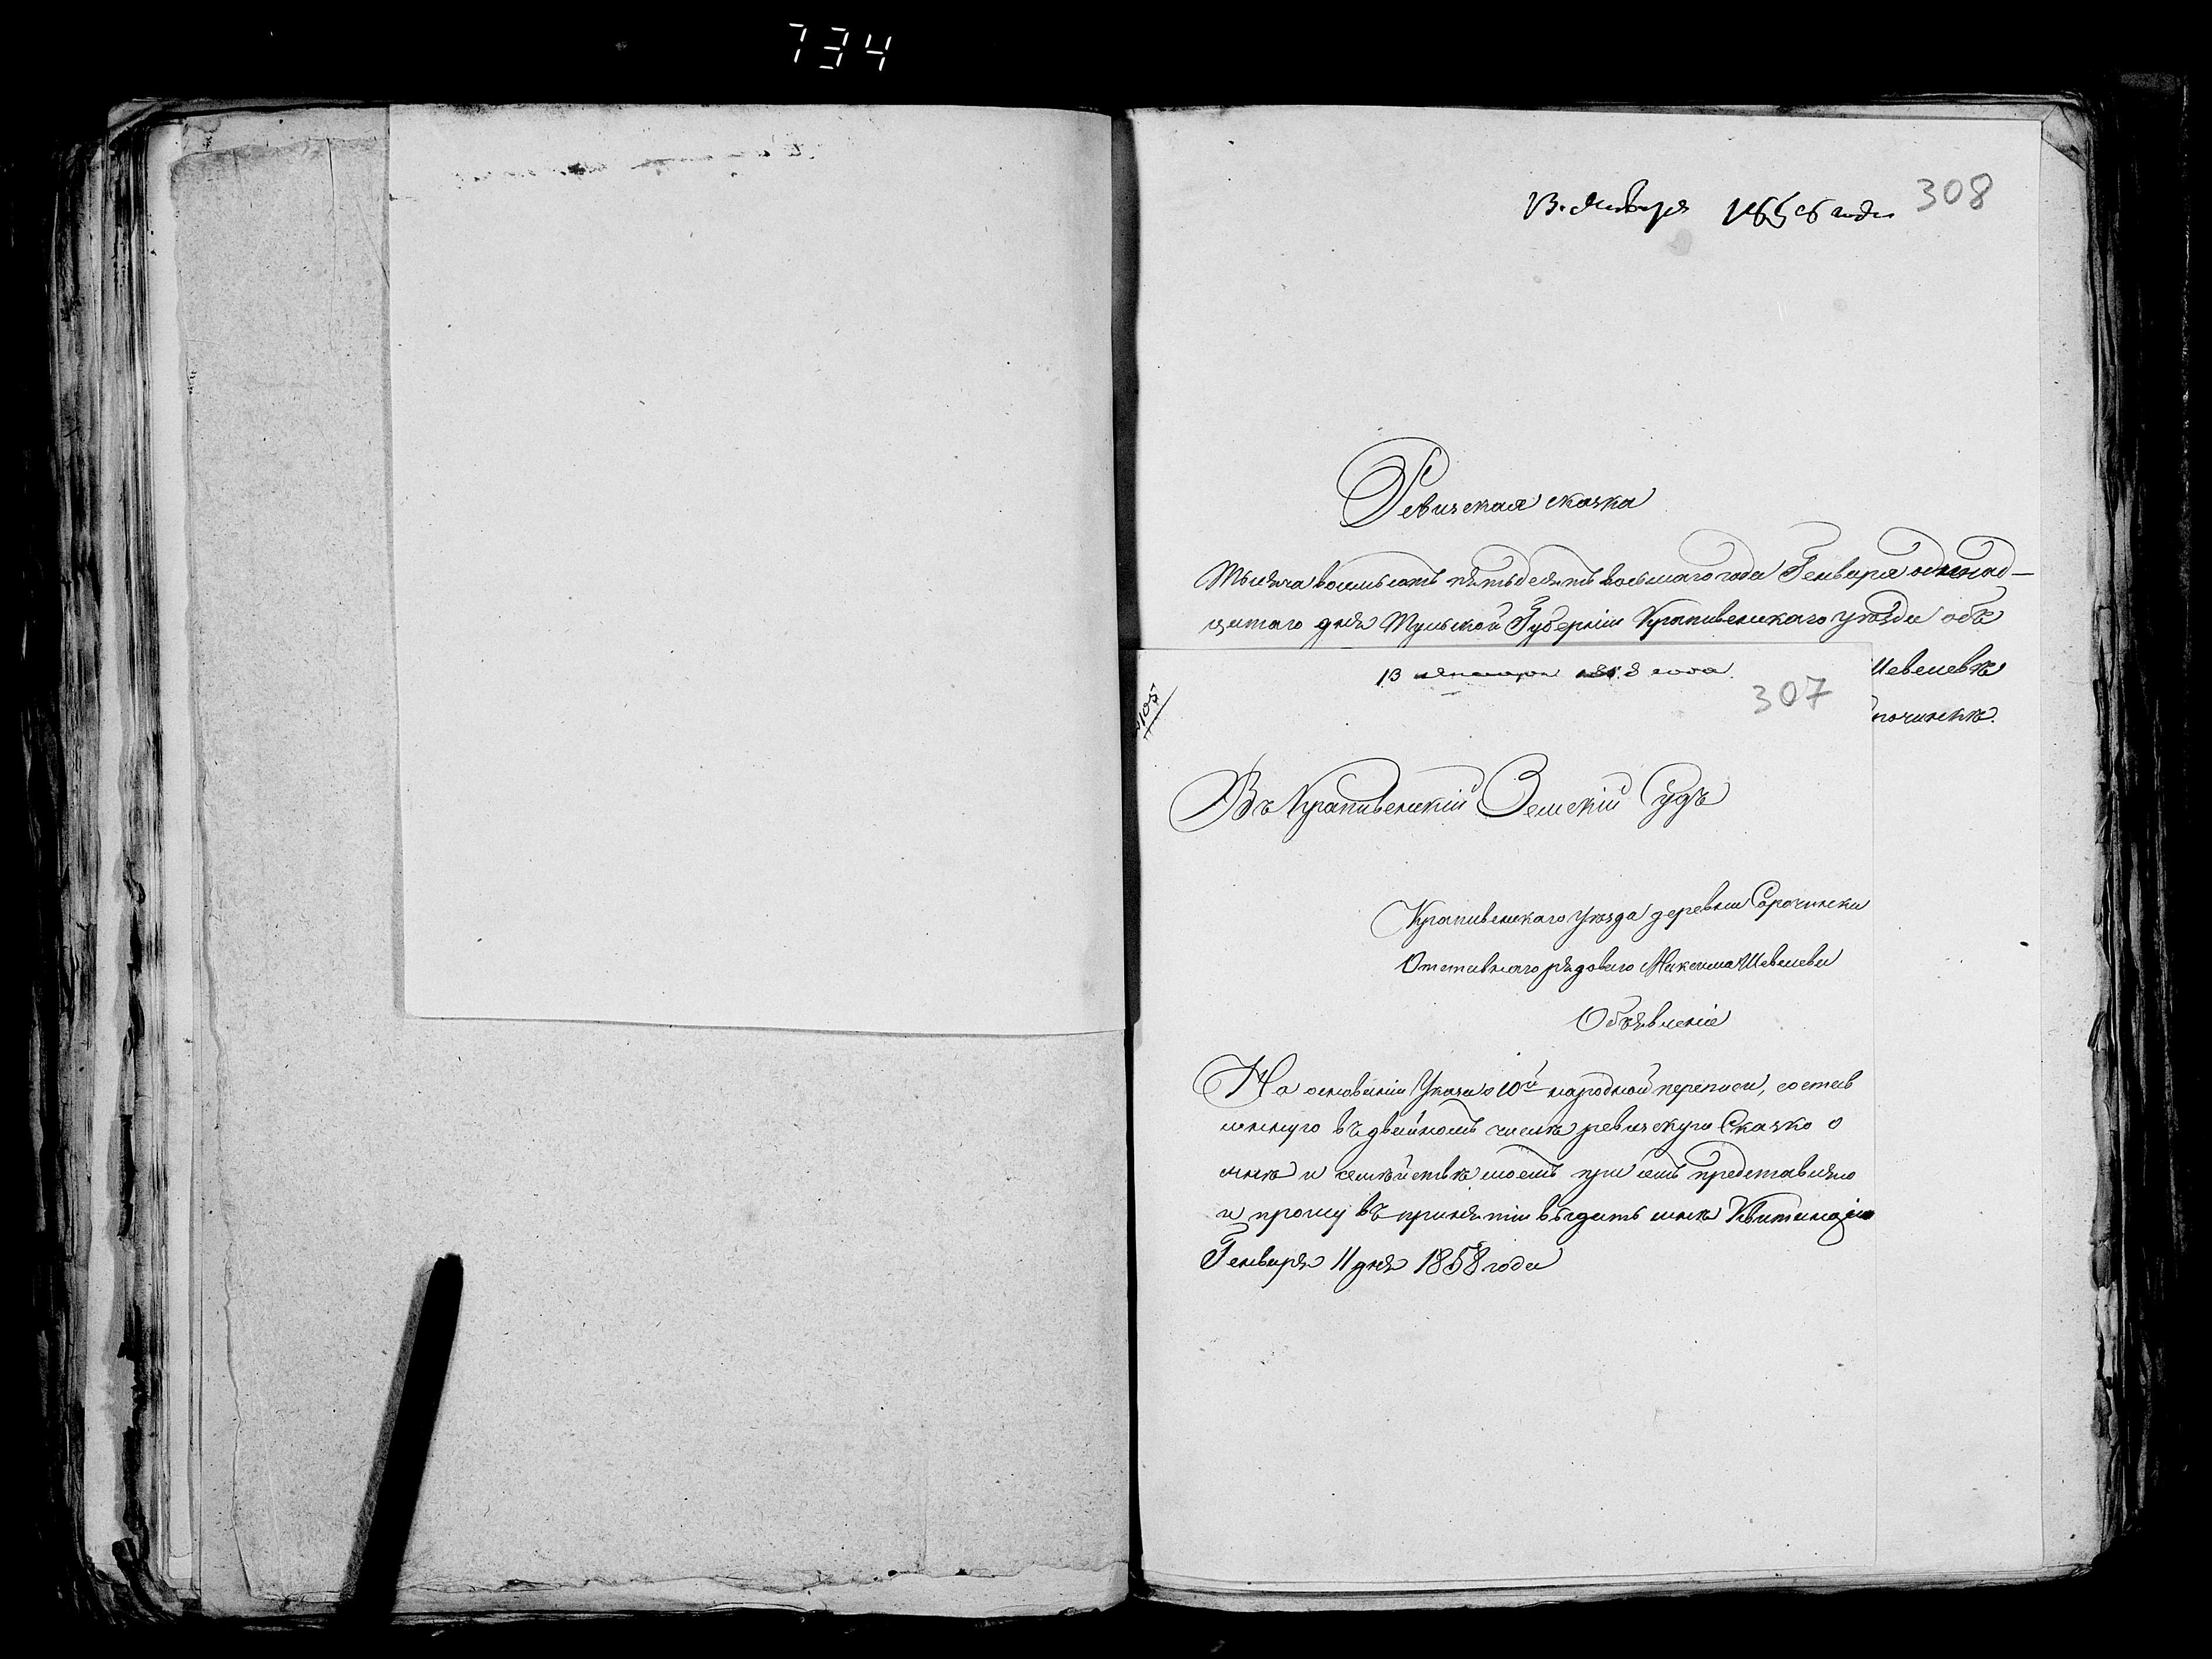 734
13. Января 1858 года 308
Ревизская сказка
Тысяча восемьсотъ пятьдесятъ восьмаго года Генваря одинад-
цатаго дня Тульской Губерніи Крапивенскаго уѣзда объ
Шевелевѣ
13 января 1858 года
307
рочинкѣ.
Въ Крапивенскій Земскій Судъ
Крапивенскаго уѣзда деревни Сорочинки
Отставнаго рядоваго Максима Шевелева
Объявленіе
На основаніи Указа о 10й народной переписи, состав
ленную въ двойномъ числѣ ревизскую Сказко о
мнѣ и семѣйствѣ моемъ при семъ представляю
и прошу въ принятіи выдать мнѣ Квитанцію
Генваря 11 дня 1858 года